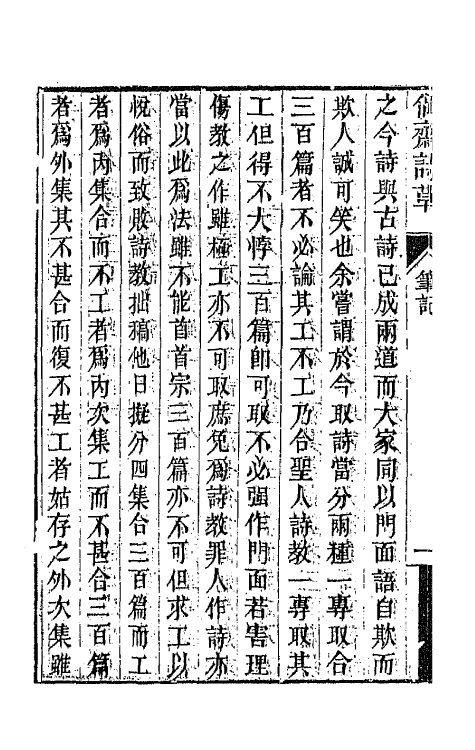 齋詩草
筆記
一
之今詩與古詩已成兩道而大家同以門面語自欺而
欺人誠可笑也余嘗謂於今取詩當分兩種一專取合
三百篇者不必論其工不工乃合聖人詩教一專取其
工但得不大悖三百篇卽可取不必强作門面若害理
傷教之作雖極工亦不可取庶免爲詩教罪人作詩亦
當以此爲法雖不能首首宗三百篇亦不可但求工以
悅俗而致敗詩教拙稿他日擬分四集合三百篇而工
者爲內集合而不工者爲內次集工而不甚合三百篇
者爲外集其不甚合而復不甚工者姑存之外次集雖